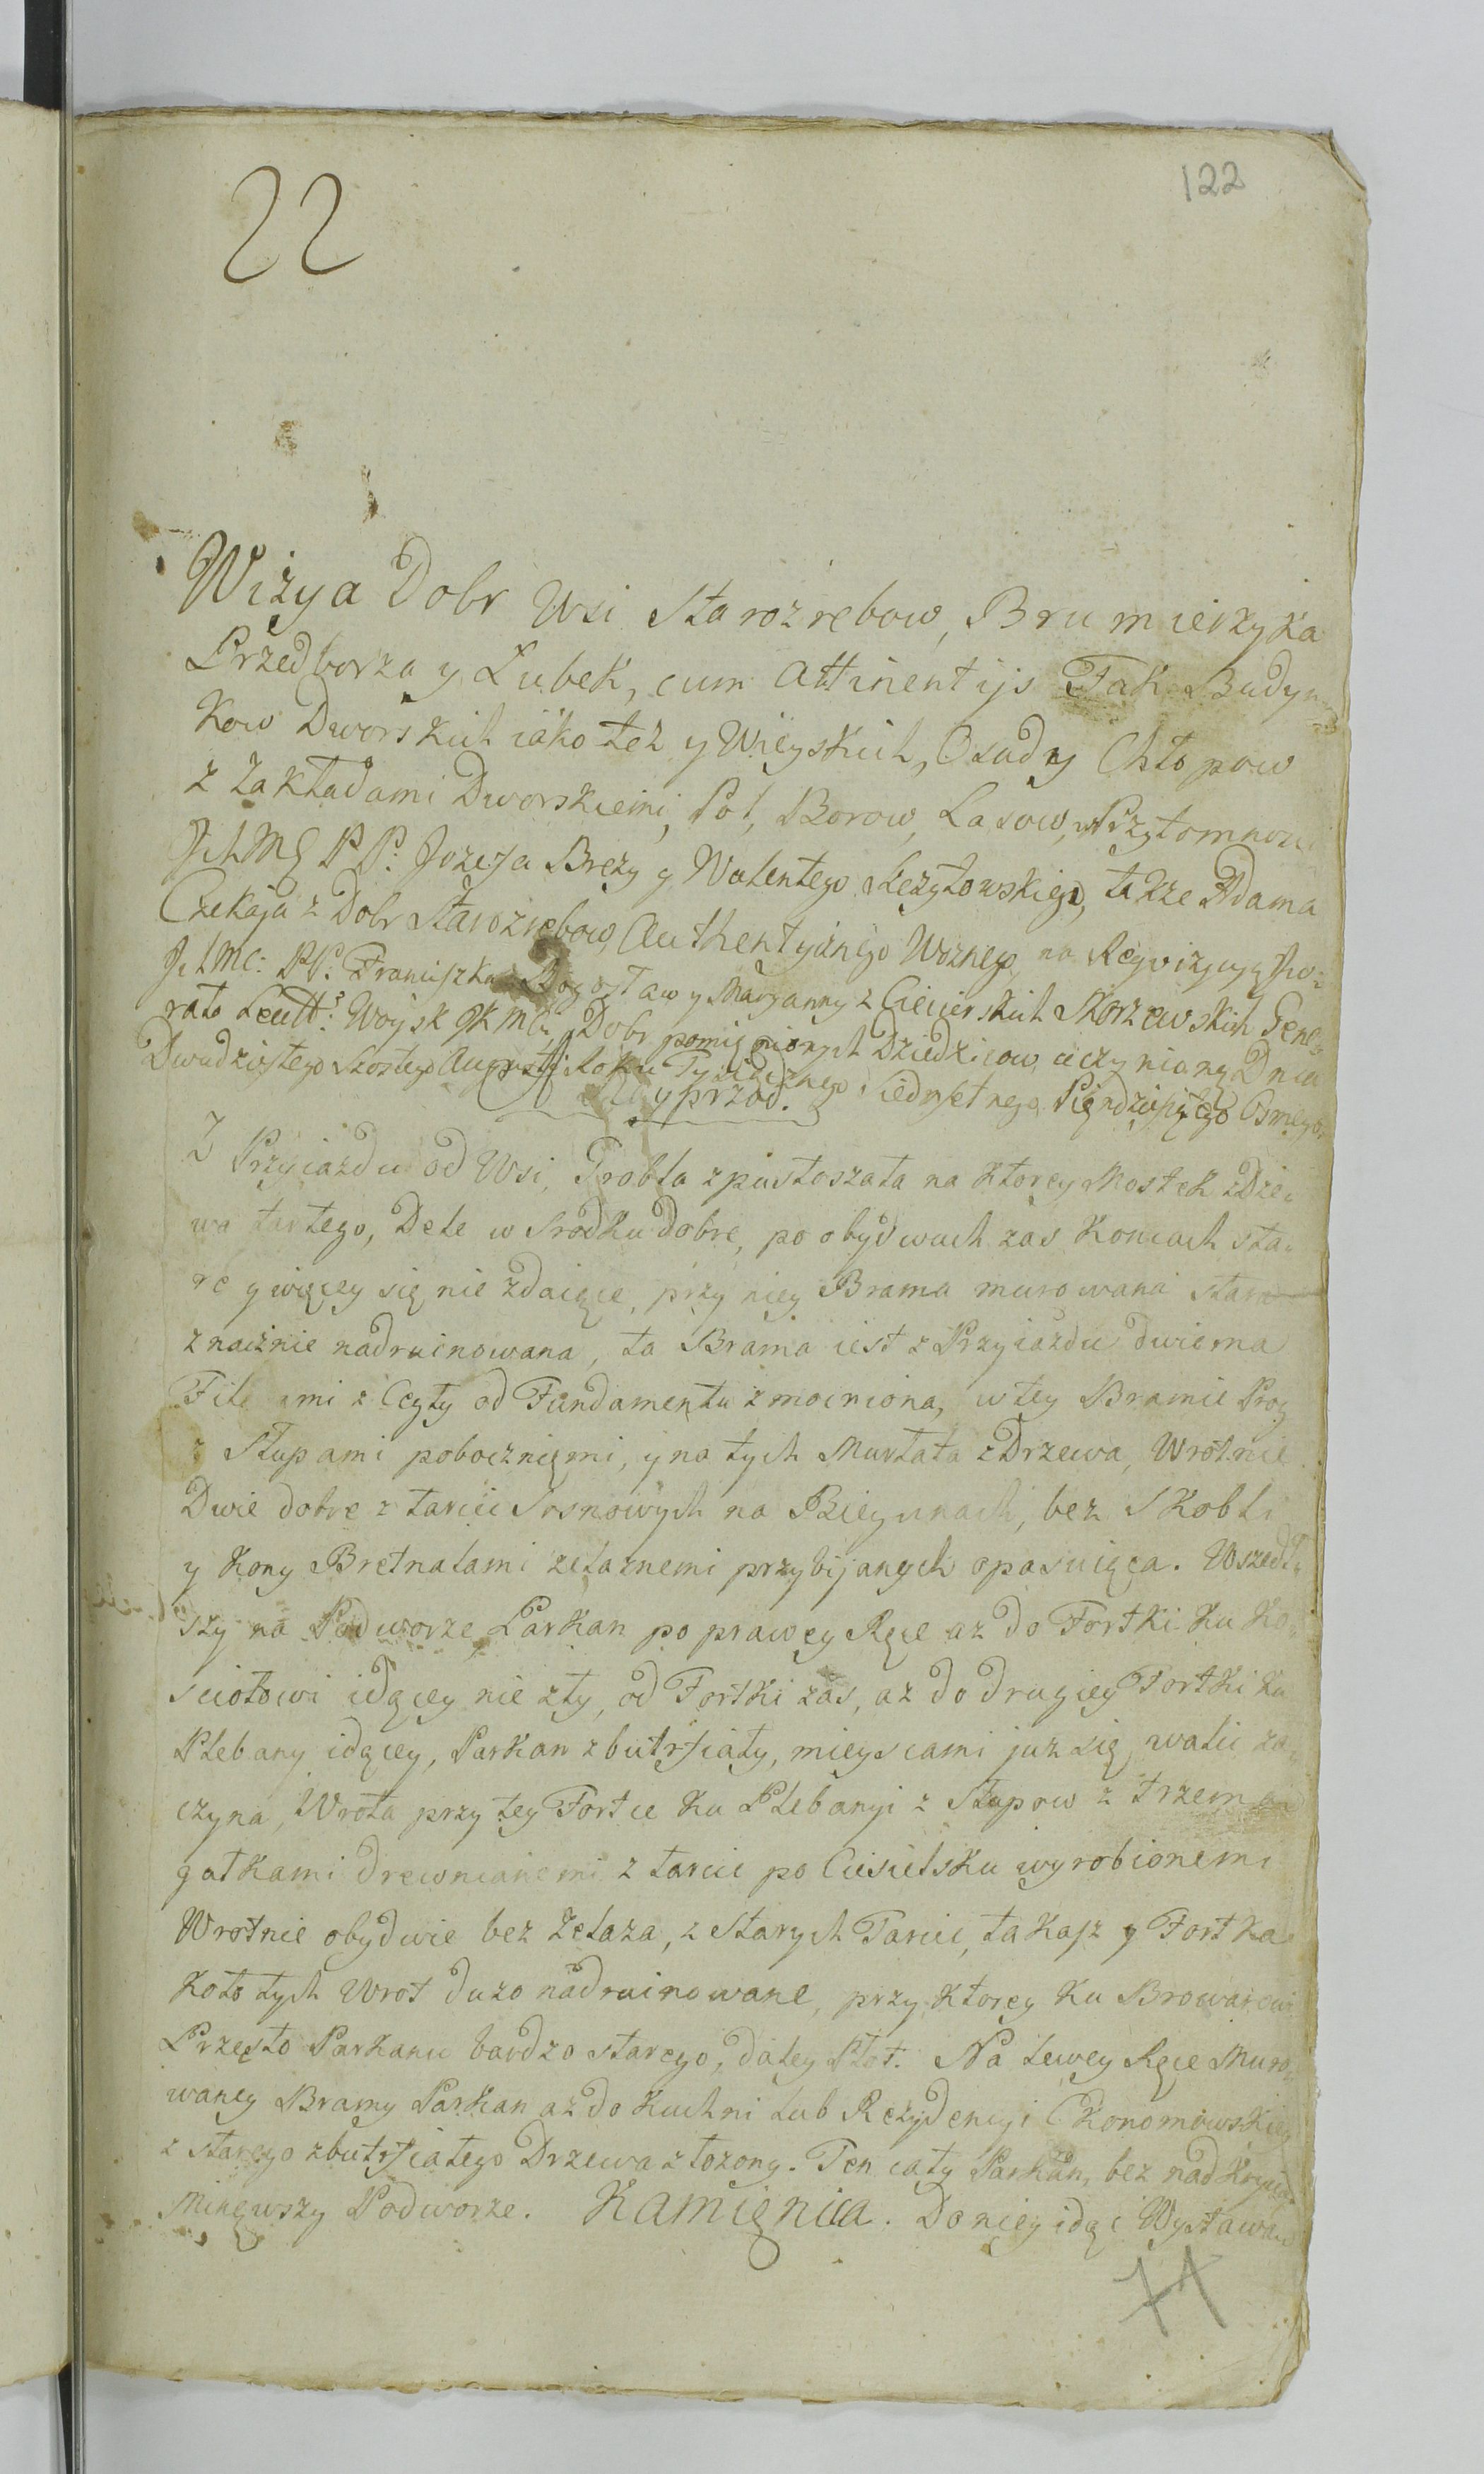 22
122
Wizya Dobr Wsi Starozrebow, Brumierzyka
Przedborza y Łubek, cum attinentijs Tak Budyn=
kow Dworskich iako też y Wieyskich, Osady Chłopow
z zakładami Dworskiemi, Pol, Borow, Lasow, w Przytomnosci
JchMC PP: Jozefa Brezy y Walentego Leżytowskiego, także Adama
Czekaja z Dobr Starozrebow, Authentycznego Woznego, na Rewizyą
JchMC: PP: Franciszka Bogosław y Maryanny z Ciecierskich Skorzewskich Gene=
rała Leutt: Woysk JKMCi, Dobr pomięnionych Dziedzicow uczyniony Dnia
Dwudziestego Szostego Augusti Roku Tysiącznego Siedmsetnego Pięndziesiątego Osmego
Nayprzod.
Z Przyiazdu od Wsi, Grobla zpustoszała na ktorey Mostek z Drze=
wa tartego, Dele w srodku dobre, po obydwuch zas Koncach sta=
re y więcey się nie zdaiące, przy niey Brama murowana stara
znacznie nadruinowana, ta Brama iest z Przyiazdu dwiema
Fila ami z Cegły od Fundamentu zmocniona, w tey Bramie Prog
z Słupami pobocznięmi, y na tych Murłata z Drzewa, Wrotnie
Dwie dobre z tarcic Sosnowych na Biegunach, bez Skobli
y Kony Bretnalami żelaznemi przybijanych opasuiąca. Wszedł=
szy na Podworze Parkan po prawey Ręce aż do Fortki ku Ko=
sciołowi idącey nie zły, od Fortki zas, aż do drugiey Fortki ku
Plebany idącey, Parkan zbutrsiały, mieyscami już się walić za=
czyna, Wrota przy tey Fortce ku Plebanyi z Słupow z trzema
gałkami drewnianemi z tarcic po Ciesielsku wyrobionemi
Wrotnie obydwie bez Żelaza, z starych Tarcic, takasz y Fortka
koło tych Wrot dużo nadruinowane, przy ktorey ku Browarowi
Przęsło Parkanu bardzo starego, daley Płot. Na lewey Ręce Muro=
waney Bramy Parkan aż do Kuchni lub Rezydencyi Ekonomowskiey
z starego zbutrsiałego Drzewa złożony. Ten cały Parkan, bez nadkrycia
Minąwszy Podworze. Kamięnica. Do niey idąc Wystawa